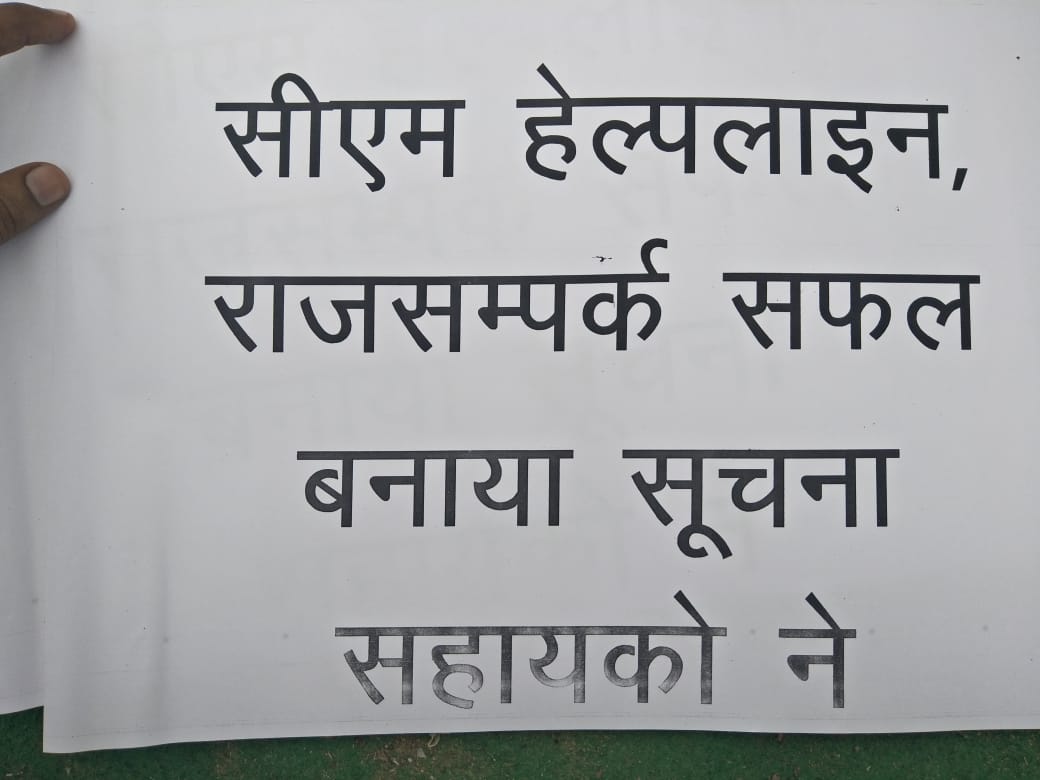 सीएम हेल्पलाइन,
राजसम्पर्क सफल
बनाया सूचना
सहायको ने